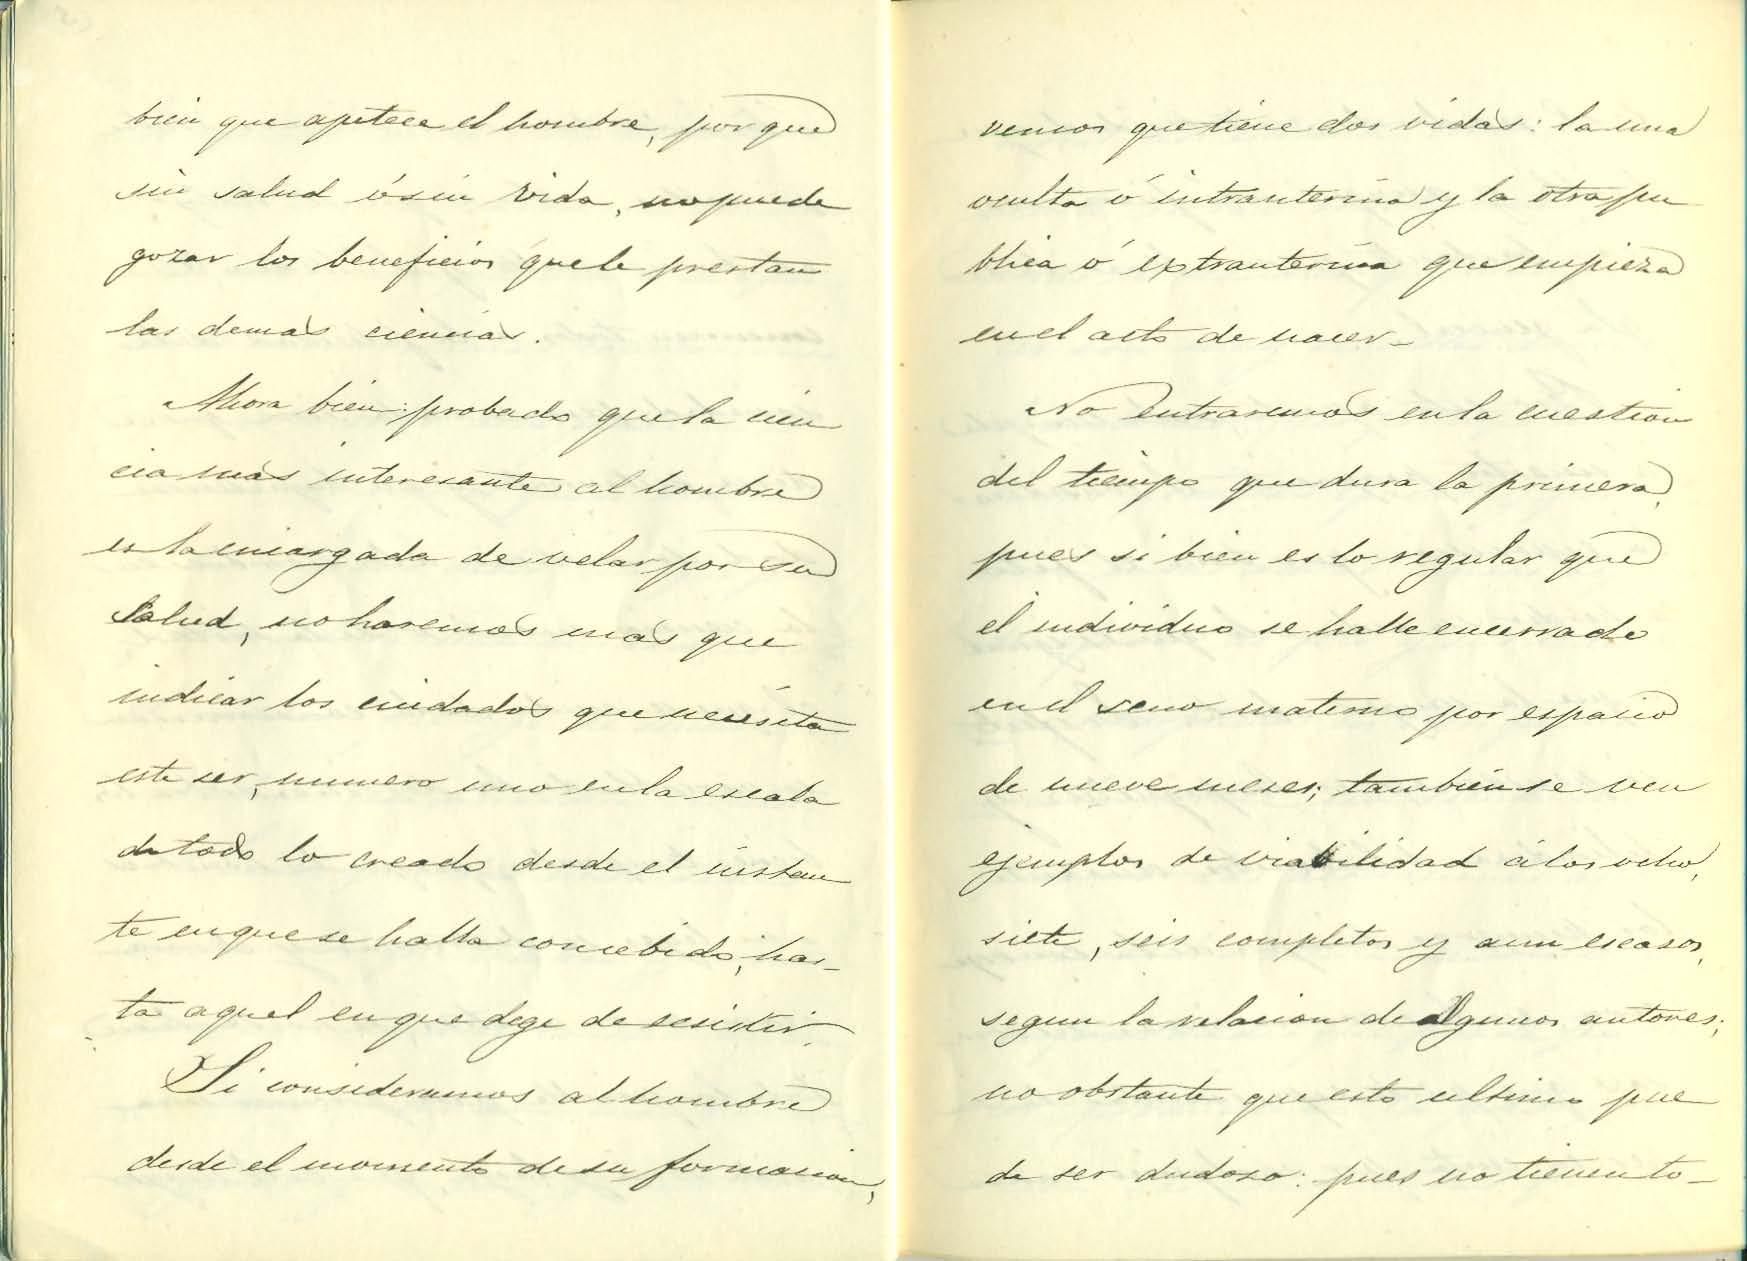 bien que apetece el hombre, por que
sin salud ó sin vida, no puede
gozar los beneficios que le prestan
las demas ciencias.
Ahora bien: probado que la cien
cia mas interesante al hombre
es la encargada de velar por su
salud, no haremos mas que
indicar los cuidados que necesita
este ser, numero uno en la escala
de todo lo creado desde el instan
te en que se halla concebido, has-
ta aquel en que deje de ecsistir.
Si consideramos al hombre
desde el momento de su formacion,
vemos que tiene dos vidas: la una
oculta ó intrauterina y la otra pu
blica ó extrauterina que empieza
en el acto de nacer-
No entraremos en la cuestion
del tiempo que dura la primera,
pues si bien es lo regular que
el individuo se halle encerrado
en el seno materno por espacio
de nueve meses; tambien se ven
ejemplos de viabilidad á los ocho,
siete, seis completos y aun escasos,
segun la relacion de algunos autores;
no obstante que esto ultimo pue
de ser dudoso: pues no tienen to-